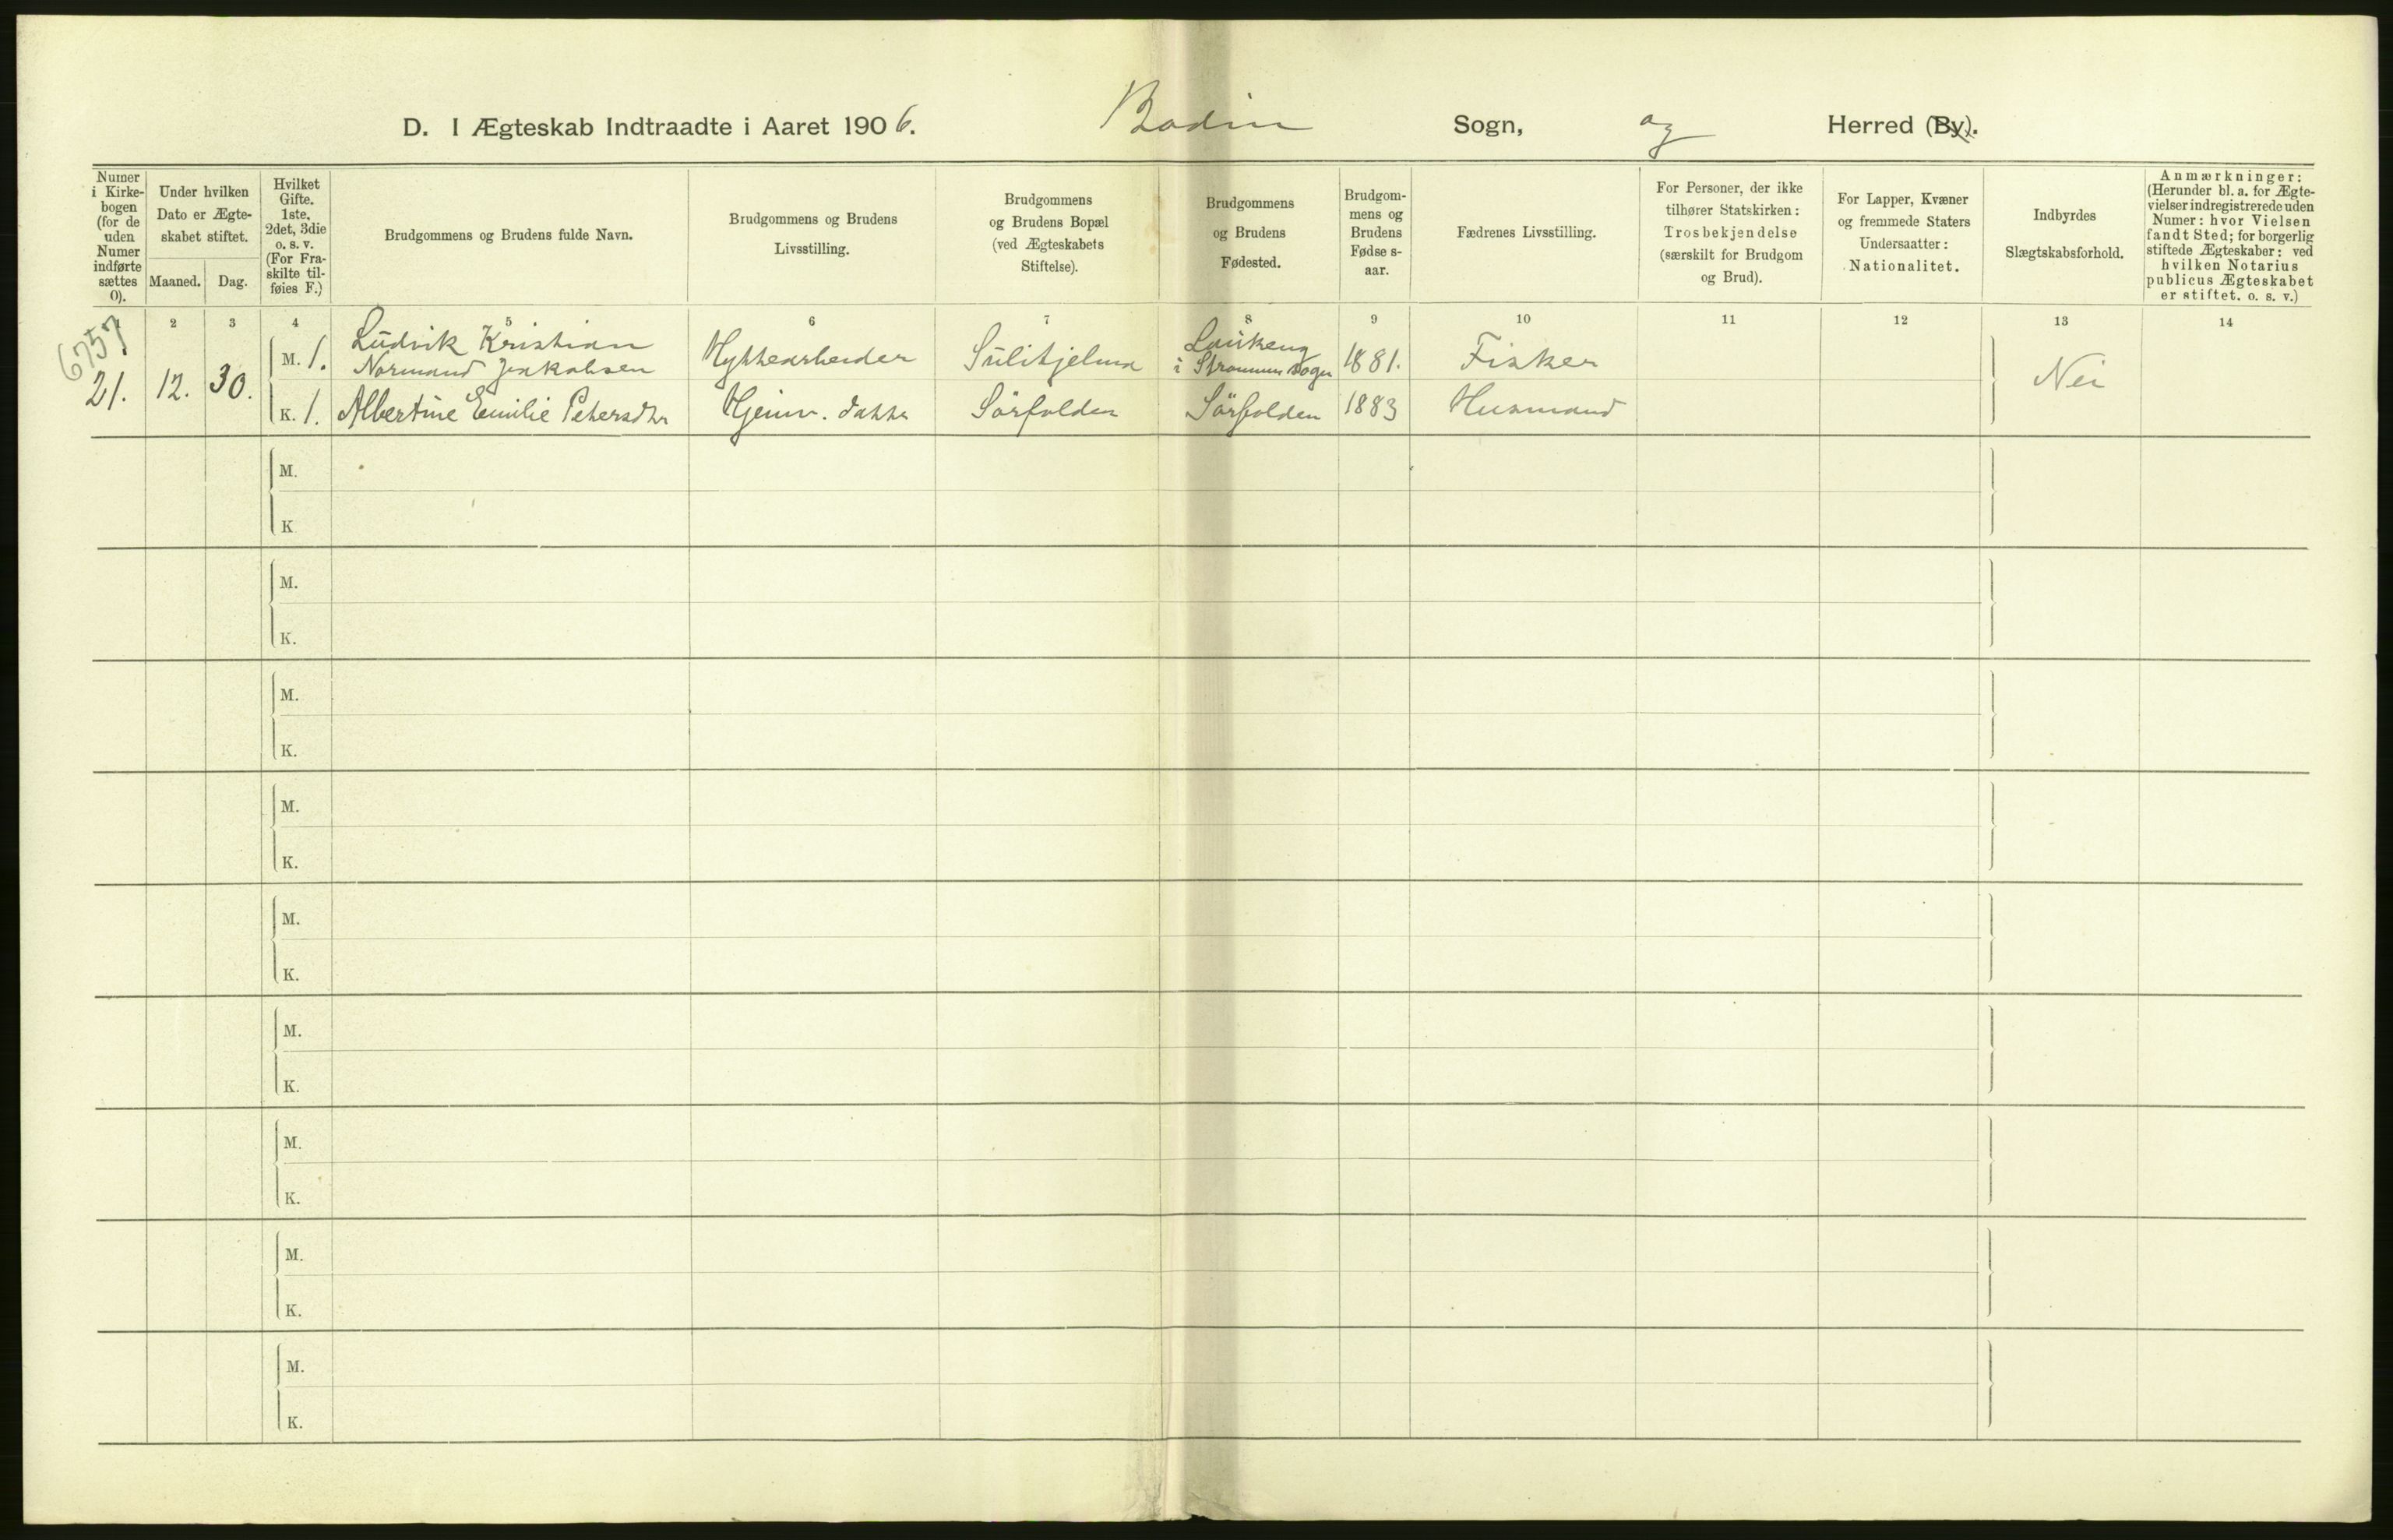 D. I Ægteskab Indtraadte i Aaret 1906. Bodin Sogn, og Herred (By).
Numer i Kirke-bogen (for de uden Numer indførte sættes 0).
Under hvilken Dato er Ægte-skabet stiftet.
Maaned. Dag.
Hvilket Gifte. 1ste, 2det, 3die o. s. v. (For Fra-skilte til-føies F.)
Brudgommens og Brudens fulde Navn.
Brudgommens og Brudens Livsstilling.
Brudgommens og Brudens Bopæl (ved Ægteskabets Stiftelse).
Brudgommens og Brudens Fødested.
Brudgom-mens og Brudens Fødse s-aar.
Fædrenes Livsstilling.
For Personer, der ikke tilhører Statskirken: Trosbekjendelse (særskilt for Brudgom og Brud).
For Lapper, Kvæner og fremmede Staters Undersaatter: Nationalitet.
Indbyrdes Slægtskabsforhold.
Anmærkninger: (Herunder bl. a. for Ægte-vielser indregistrerede uden Numer: hvor Vielsen fandt Sted; for borgerlig stiftede Ægteskaber: ved hvilken Notarius publicus Ægteskabet er stiftet. o. s. v.)
1 2 3 4 5 6 7 8 9 10 11 12 13 14
6757
21. 12. 30.
M. 1. Ludvik Kristian Normand Jakobsen Hyttearbeider Sulitjelma i Strømmen Sogn 1881. Fisker Nei
K. 1. Albertine Emilie Petersdtr Hjemv. datter Sörfolden Sörfolden 1883 Husmand
M.
K
M.
K.
M.
K.
M.
K.
M.
K.
M.
K.
M.
K.
M.
K.
M.
K.